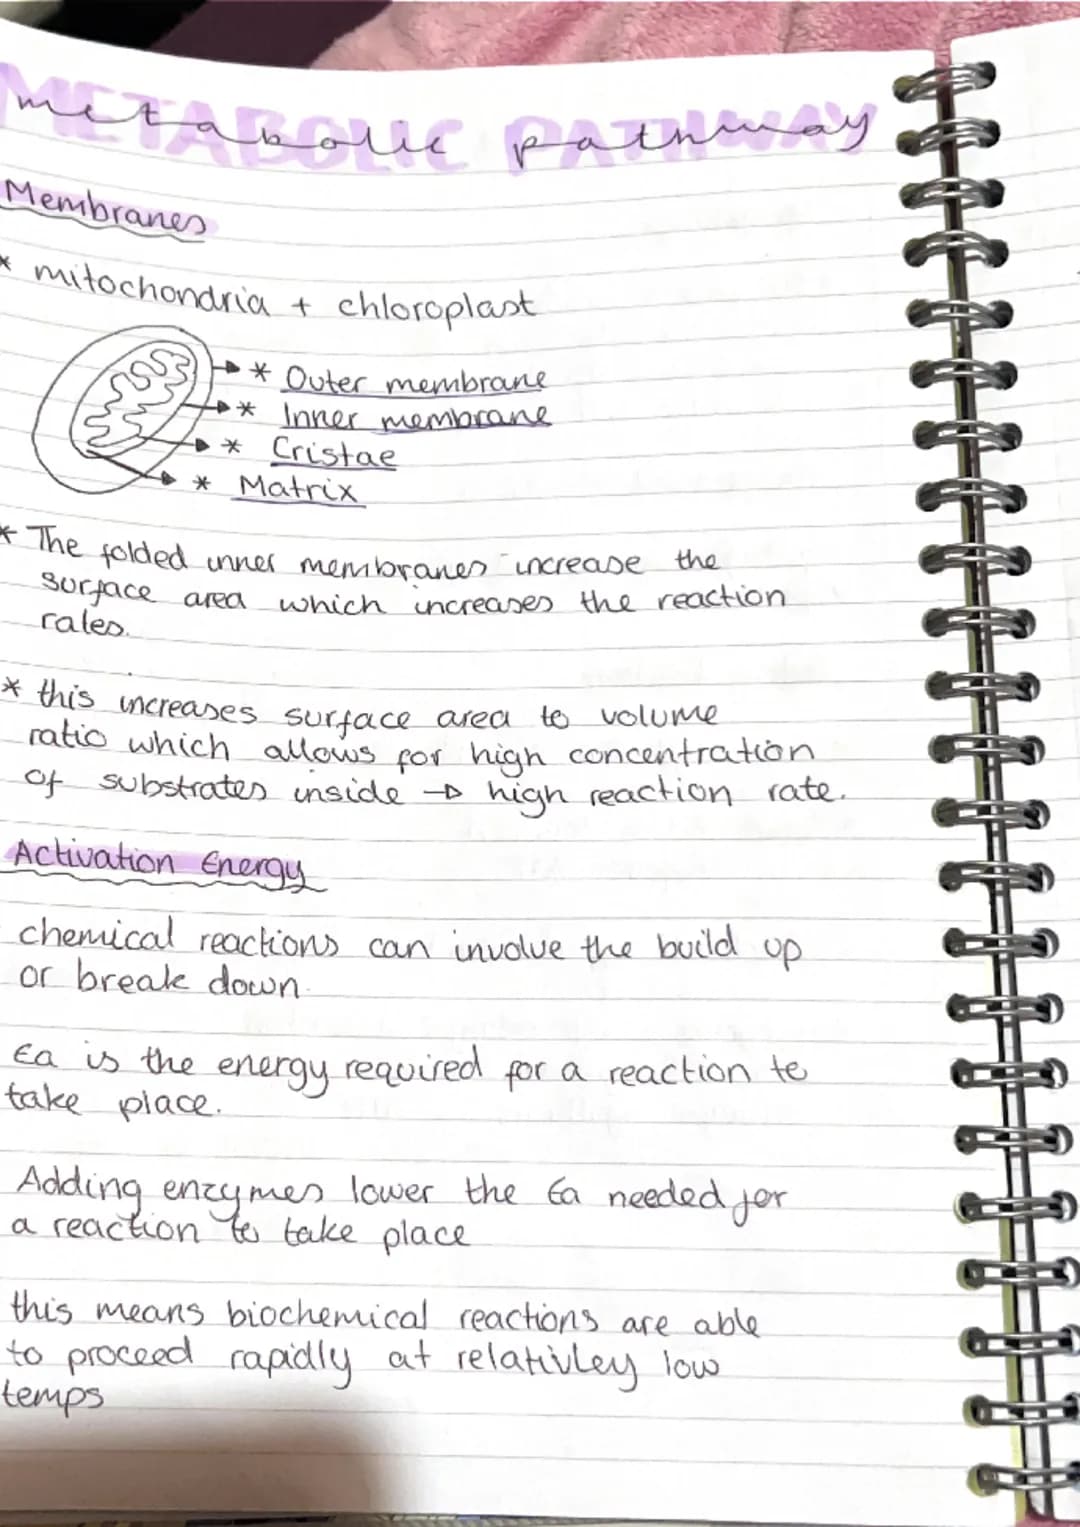 METABOLIC PATHWAY
metabolic pathway
Membranes
* mitochondria + chloroplast
* Outer membrane
* Inner membrane
* Cristae
* Matrix
* The folded inner membranes increase the
surface area which increases the reaction
rates.
* this increases surface area to volume
ratio which allows for high concentration
of substrates inside → high reaction rate.
Activation Energy
chemical reactions can involve the build up
or break down.
Ea is the energy required for a reaction to
take place.
Adding enzymes lower the Ea needed for
a reaction to take place
this means biochemical reactions are able
to proceed rapidly at relativley low
temps